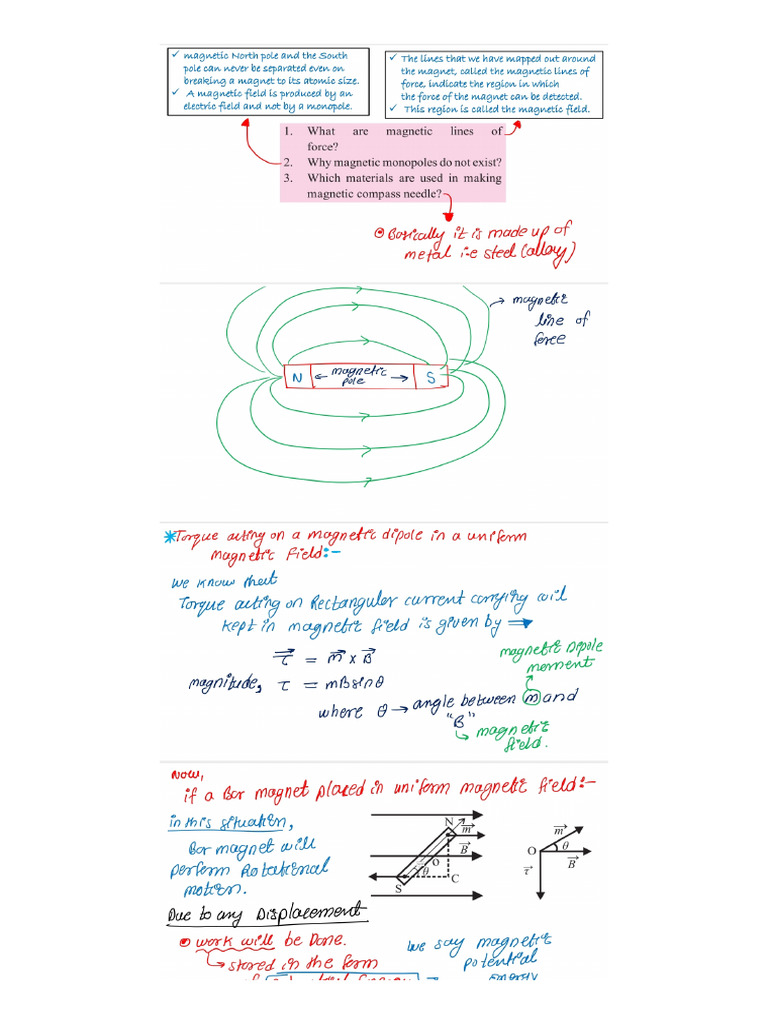 ✓ magnetic North pole and the South
pole can never be separated even on
breaking a magnet to its atomic size.
✓ A magnetic field is produced by an
electric field and not by a monopole.
✓ The lines that we have mapped out around
the magnet, called the magnetic lines of
force, indicate the region in which
the force of the magnet can be detected.
✓ This region is called the magnetic field.
1. What are magnetic lines of
force?
2. Why magnetic monopoles do not exist?
3. Which materials are used in making
magnetic compass needle?
Basically it is made up of
metal i.e steel (alloy)
magnetic
line of
force
N ← magnetic pole → S
*Torque acting on a magnetic dipole in a uniform
magnetic field:-
we know that
Torque acting on Rectangular current carrying coil
kept in magnetic field is given by ⇒
τ⃗ = m⃗ × B⃗
magnitude, τ = mBsinθ
magnetic Dipole
moment
where θ → angle between m and
"B"
magnetic
field.
Now,
if a Bar magnet placed in uniform magnetic field:-
in this situation,
Bar magnet will
perform Rotational
motion.
N m⃗ B⃗ O θ S C
m⃗ O θ B⃗ τ⃗
Due to any Displacement
work will be Done.
stored in the form
we say magnetic
potential
energy